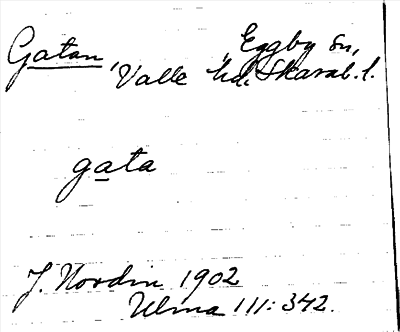 Gatan, Eggby sn,
Valle hd. Skarab. l.
gata
J. Nordin 1902
Ulma 111: 342.